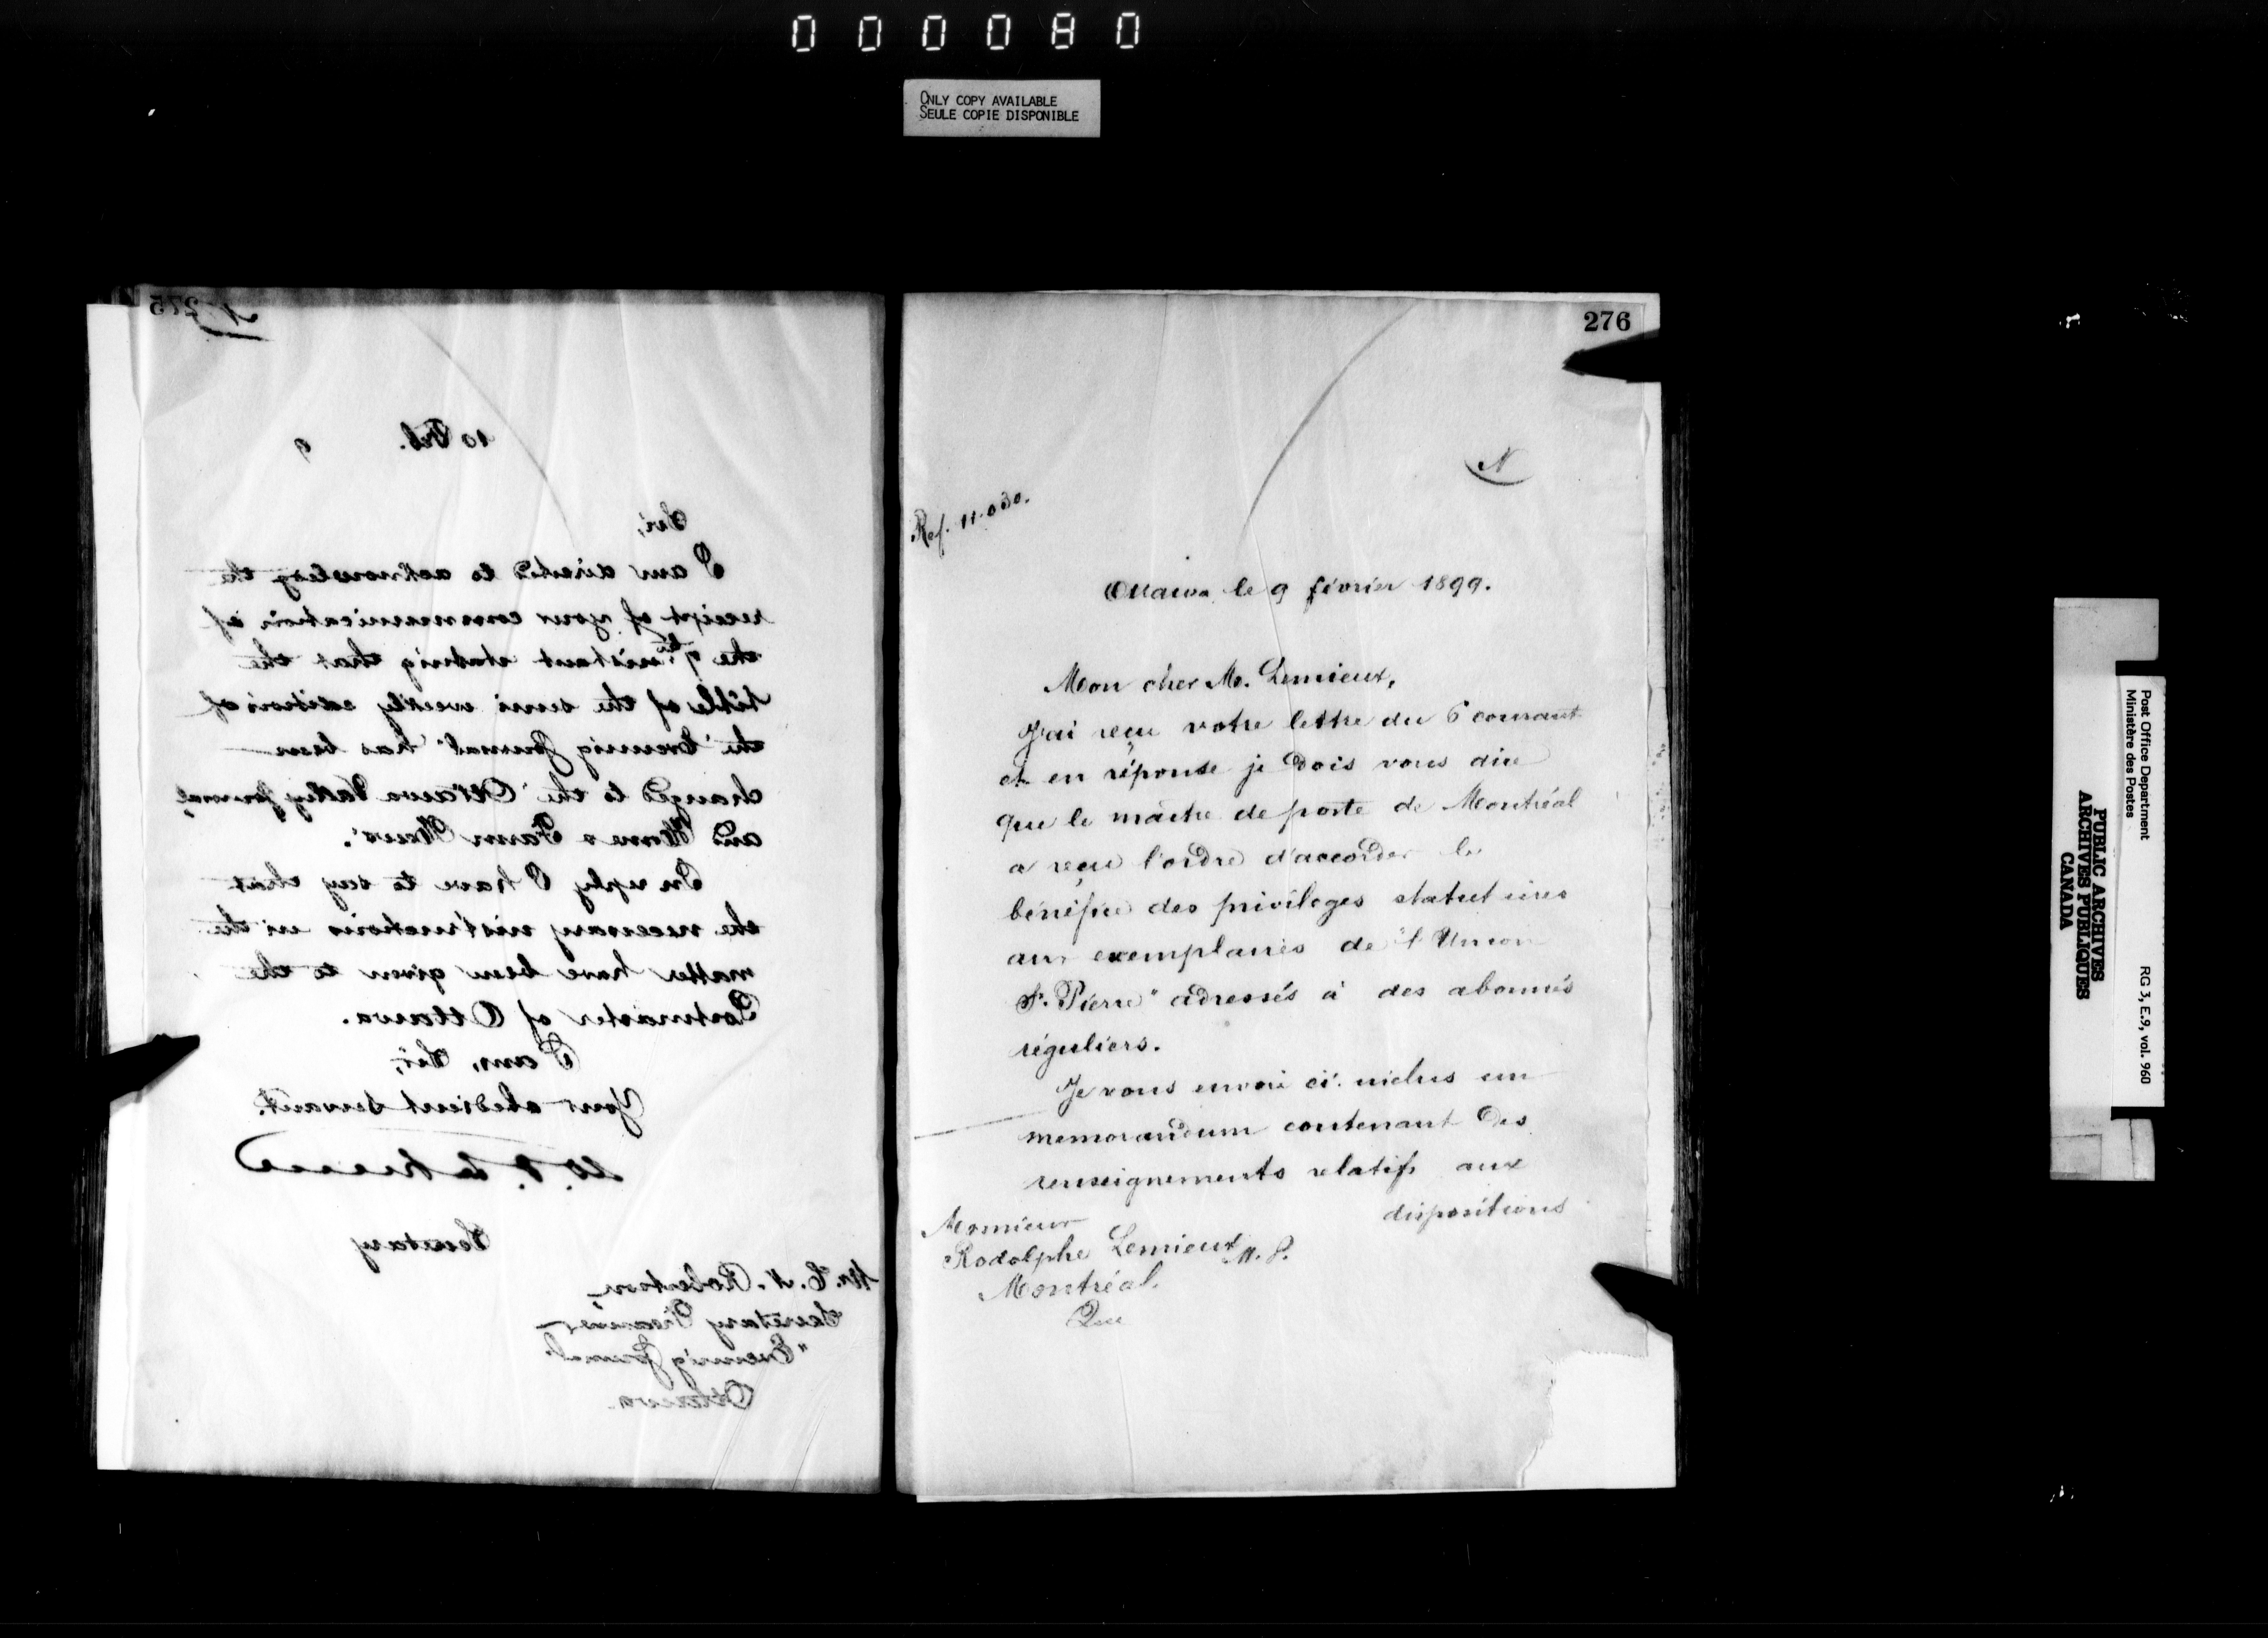 000080
ONLY COPY AVAILABLE
SEULE COPIE DISPONIBLE
275
N
10 Feb. 9
Sir,
I am directed to acknowledge the
receipt of your communication of
the 9th instant stating that the
title of the semi weekly edition of
the "Evening Journal" has been
changed to the "Ottawa Valley Journal
and Home & Farm News".
In reply I have to say that
the necessary instructions in the
matter have been given to the
Postmaster of Ottawa.
I am, Sir,
Your obedient servant.
Secretary
Mr. C. N. Robertson,
Secretary Treasurer
"Evening Journal"
Ottawa.
276
N
Ref. 11.030.
Ottawa le 9 février 1899.
Mon cher M. Lemieux,
J'ai reçu votre lettre du 6 courant
et en réponse je dois vous dire
que le maître de poste de Montréal
a reçu l'ordre d'accorder le
bénéfice des privilèges statutaires
aux exemplaires de "l'Union
St. Pierre" adressés à des abonnés
réguliers.
Je vous envoie ci-inclus un
memorandum contenant des
renseignements relatifs aux
dispositions
Monsieur
Rodolphe Lemieux M.P.
Montréal.
Que
Post Office Department
Ministère des Postes
RG 3, E.9, vol. 960
PUBLIC ARCHIVES
ARCHIVES PUBLIQUES
CANADA